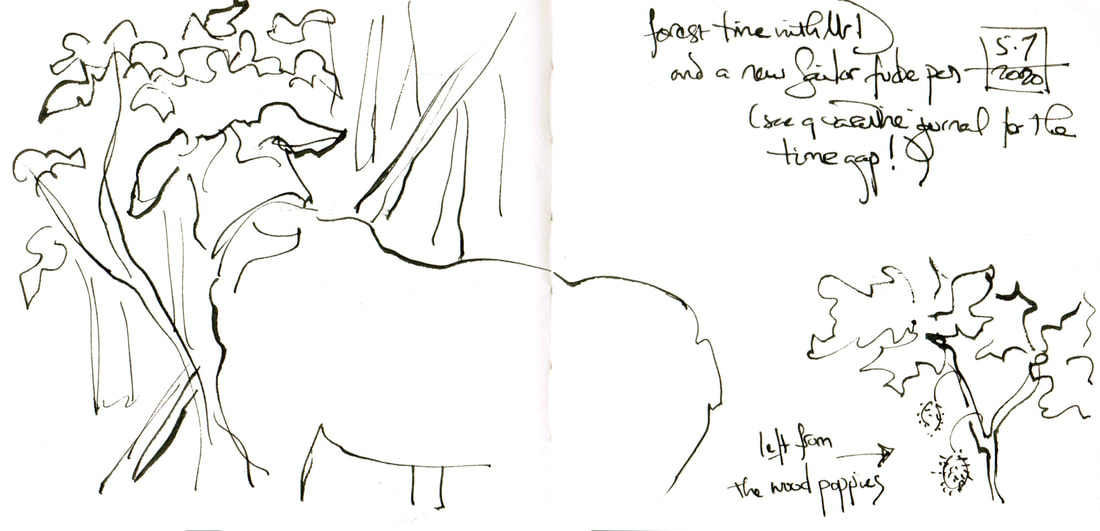 forest time with Mr D
and a new Sailor fude pen
5.7
2020
(see quarantine journal for the
time gap!)
left from
the wood poppies